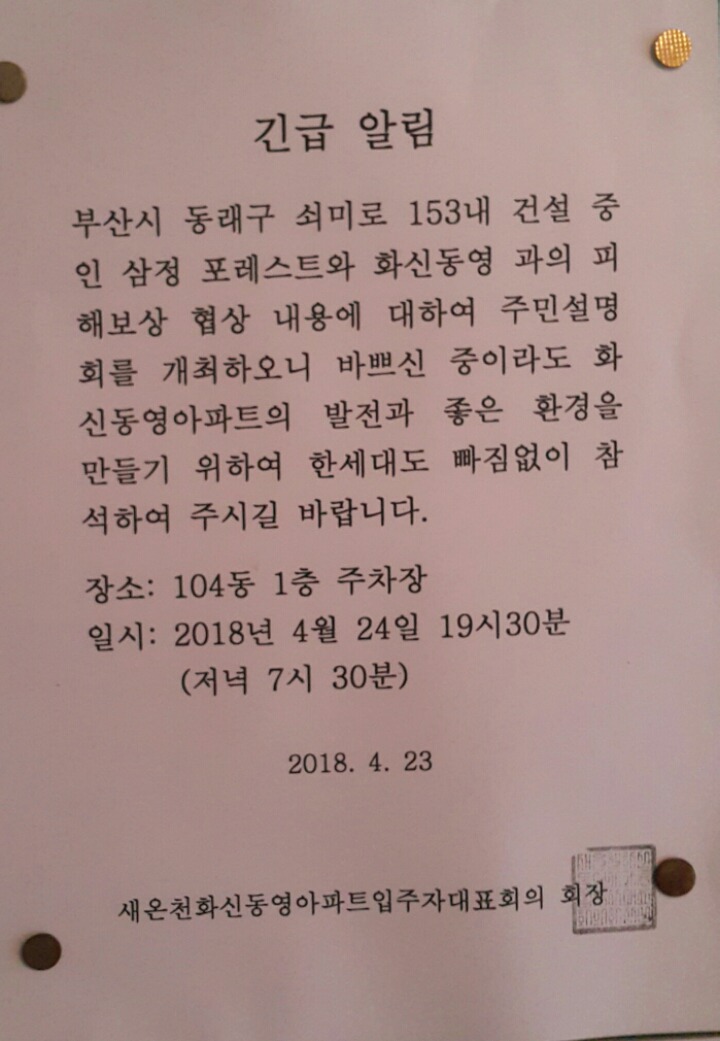 긴급 알림
부산시 동래구 쇠미로 153내 건설 중
인 삼정 포레스트와 화신동영 과의 피
해보상 협상 내용에 대하여 주민설명
회를 개최하오니 바쁘신 중이라도 화
신동영아파트의 발전과 좋은 환경을
만들기 위하여 한세대도 빠짐없이 참
석하여 주시길 바랍니다.
장소: 104동 1층 주차장
일시: 2018년 4월 24일 19시30분
(저녁 7시 30분)
2018. 4. 23
새온천화신동영아파트입주자대표회의 회장